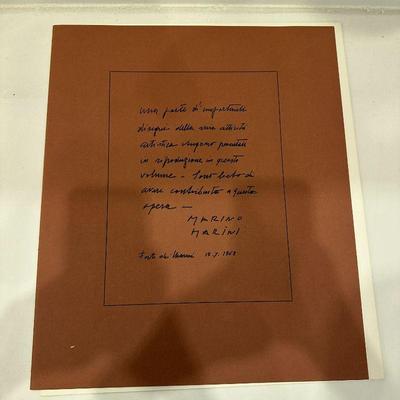 una parte di importanti
disegni della mia attività
artistica vengono presentati
in riproduzione in questo
volume - Sono lieto di
avere contribuito a questa
opera -
MARINO
MARINI
Forte dei Marmi 1968